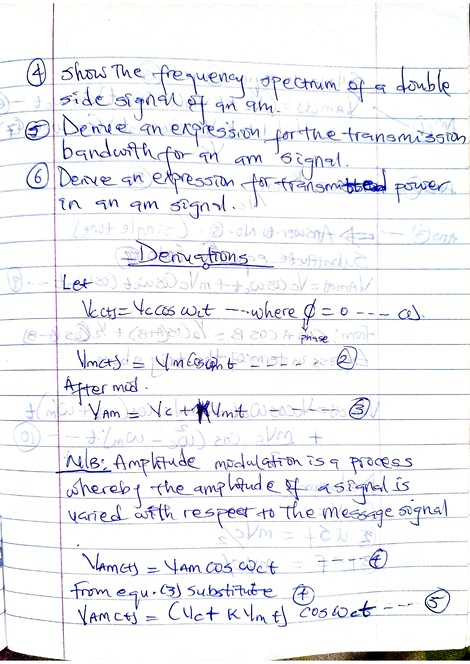 ④ Show The frequency spectrum of a double
side signal of an am.
⑤ Derive an expression for the transmission
bandwith for an am signal.
⑥ Derive an expression for transmitted power
in an am signal.
Derivations
Let
Vc(t) = Vc cos wct --- where ϕ = 0 --- (1).
phase
Vm(t) = Vm cos wmt - - - - - ②
After mod.
VAM = Vc + KVmt - - - - ③
N/B: Amplitude modulation is a process
whereby the amplitude of a signal is
varied with respect to the message signal
.
VAM(t) = VAM cos wct - - - - ④
from equ. (3) substitute ④
VAM(t) = (Vct + KVmt) cos wct --- ⑤